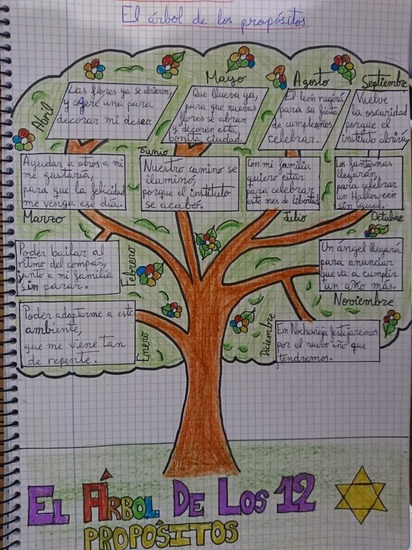 El árbol de los propósitos
Abril
Las flores ya se abrieron,
y cogeré una para
decorar mi mesa.
Mayo
Que llueva ya,
para que nuevas
flores se abran
y decoren esta
bonita ciudad.
Agosto
El león rugirá
para su fiesta
de cumpleaños
celebrar.
Septiembre
Vuelve
la oscuridad
porque el
instituto abrirá.
Ayudar a otros a mi
me gustaría,
para que la felicidad
me venga ese día.
Marzo
Junio
Nuestro camino se
iluminó,
porque el instituto
se acabó.
Con mi familia
quiero estar
para celebrar
este mes de libertad.
Julio
Los fantasmas
llegarán,
para celebrar
un Halloween
sin igual.
Octubre
Poder bailar al
ritmo del compás,
junto a mi familia
sin parar.
Febrero
Un ángel llegará
para anunciar
que va a cumplir
un año más.
Noviembre
Poder adaptarme a este
ambiente,
que me viene tan
de repente.
Enero
Diciembre
En Nochevieja festejaremos
por el nuevo año que
tendremos.
EL ÁRBOL DE LOS 12
PROPÓSITOS